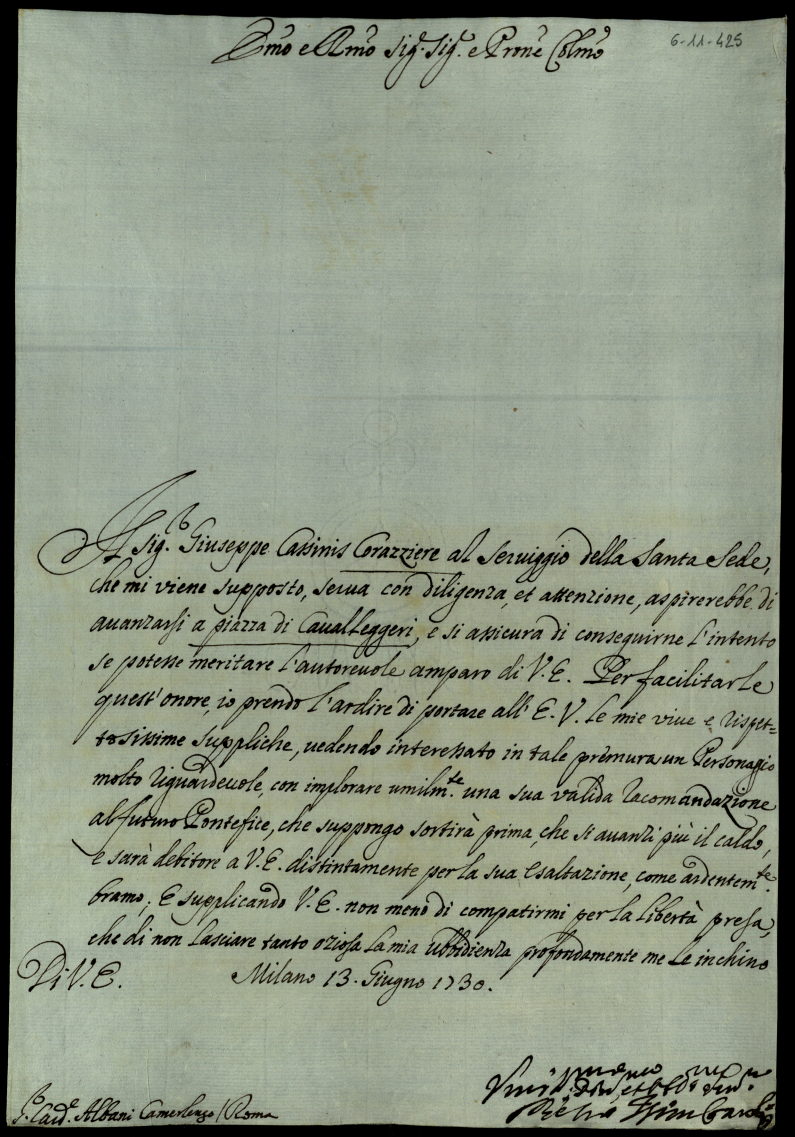 Emo e Rmo Sig.r Sig.r e Prone Colmo
6-11-425
Il Sig.r Giuseppe Cassinis Corazziere al Seruiggio della Santa Sede,
che mi viene supposto, serua con diligenza, et attenzione, aspirerebbe di
auanzarsi a piazza di Caualleggeri, e si assicura di conseguirne l'intento
se potesse meritare l'autoreuole amparo di V. E. Per facilitarle
quest'onore, io prendo l'ardire di portare all'E. V. le mie viue e rispet=
tosissime suppliche, uedendo interessato in tale premura un Personagio
molto riguardeuole, con implorare umilm.te una sua valida racomandazione
al futuro Pontefice, che suppongo sortirà prima, che si auanzi più il caldo,
e sarà debitore a V. E. distintamente per la sua esaltazione, come ardentem.te
bramo; E supplicando V. E. non meno di compatirmi per la libertà presa,
che di non lasciare tanto oziosa la mia ubbidienza profondamente me le inchino
Di V. E. Milano 13. Giugno 1730.
S.r Card.l Albani Camerlengo / Roma
Pietro